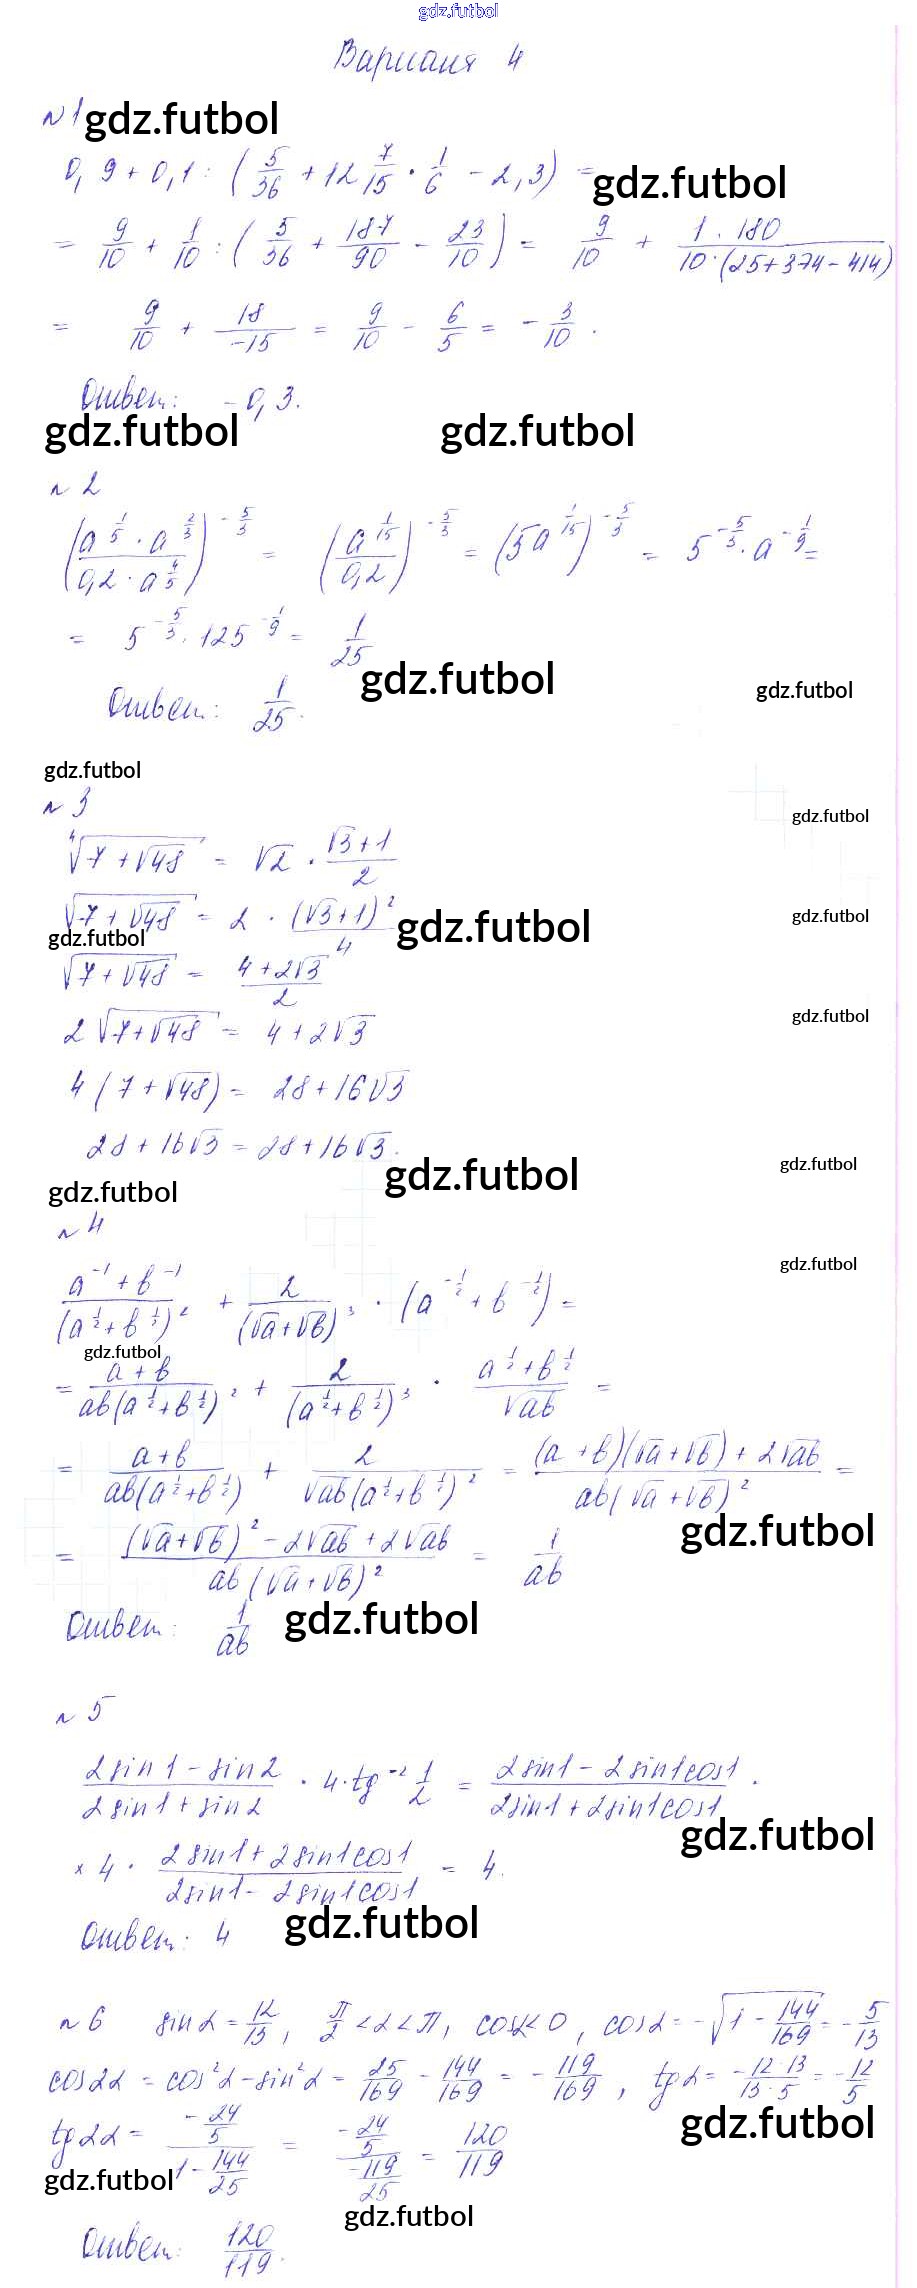 gdz.futbol
Вариант 4
№1 gdz.futbol
0,9 + 0,1 : (5/36 + 12 7/15 · 1/6 - 2,3) = gdz.futbol
= 9/10 + 1/10 : (5/36 + 187/90 - 23/10) = 9/10 + 1·180/10·(25+374-414)
= 9/10 + 18/-15 = 9/10 - 6/5 = -3/10.
Ответ: -0,3.
gdz.futbol gdz.futbol
№2
(a^(1/5) · a^(2/3) / 0,2 · a^(4/5))^(-5/3) = (a^(1/15) / 0,2)^(-5/3) = (5a^(1/15))^(-5/3) = 5^(-5/3) · a^(-1/9) =
= 5^(-5/3) · 125^(-1/9) = 1/25
gdz.futbol gdz.futbol
Ответ: 1/25.
gdz.futbol
№3
gdz.futbol
⁴√(7+√48) = √2 · (√3+1)/2
√(7+√48) = 2 · (√3+1)²/4
gdz.futbol gdz.futbol gdz.futbol
√(7+√48) = (4+2√3)/2
2√(7+√48) = 4+2√3
gdz.futbol
4(7+√48) = 28+16√3
28+16√3 = 28+16√3.
gdz.futbol gdz.futbol gdz.futbol
№4
gdz.futbol
(a^(-1) + b^(-1))/(a^(1/2)+b^(1/2))² + 2/(√a+√b)³ · (a^(-1/2) + b^(-1/2)) =
gdz.futbol
= (a+b)/(ab(a^(1/2)+b^(1/2))²) + 2/(a^(1/2)+b^(1/2))³ · (a^(1/2)+b^(1/2))/√ab =
= (a+b)/(ab(a^(1/2)+b^(1/2))) + 2/(√ab(a^(1/2)+b^(1/2))²) = ((a+b)(√a+√b)+2√ab)/(ab(√a+√b)²) =
gdz.futbol
= ((√a+√b)² - 2√ab + 2√ab)/(ab(√a+√b)²) = 1/ab
Ответ: 1/ab gdz.futbol
№5
(2sin1 - sin2)/(2sin1 + sin2) · 4·tg⁻² 1/2 = (2sin1 - 2sin1cos1)/(2sin1 + 2sin1cos1) ·
gdz.futbol
× 4 · (2sin1 + 2sin1cos1)/(2sin1 - 2sin1cos1) = 4.
gdz.futbol
Ответ: 4
№6 sinα = 12/13, π/2 < α < π, cosα<0, cosα = -√(1 - 144/169) = -5/13
cos2α = cos²α - sin²α = 25/169 - 144/169 = -119/169, tgα = -12·13/13·5 = -12/5
gdz.futbol
tg2α = (-24/5)/(1 - 144/25) = (-24/5)/(-119/25) = 120/119
gdz.futbol
gdz.futbol
Ответ: 120/119.